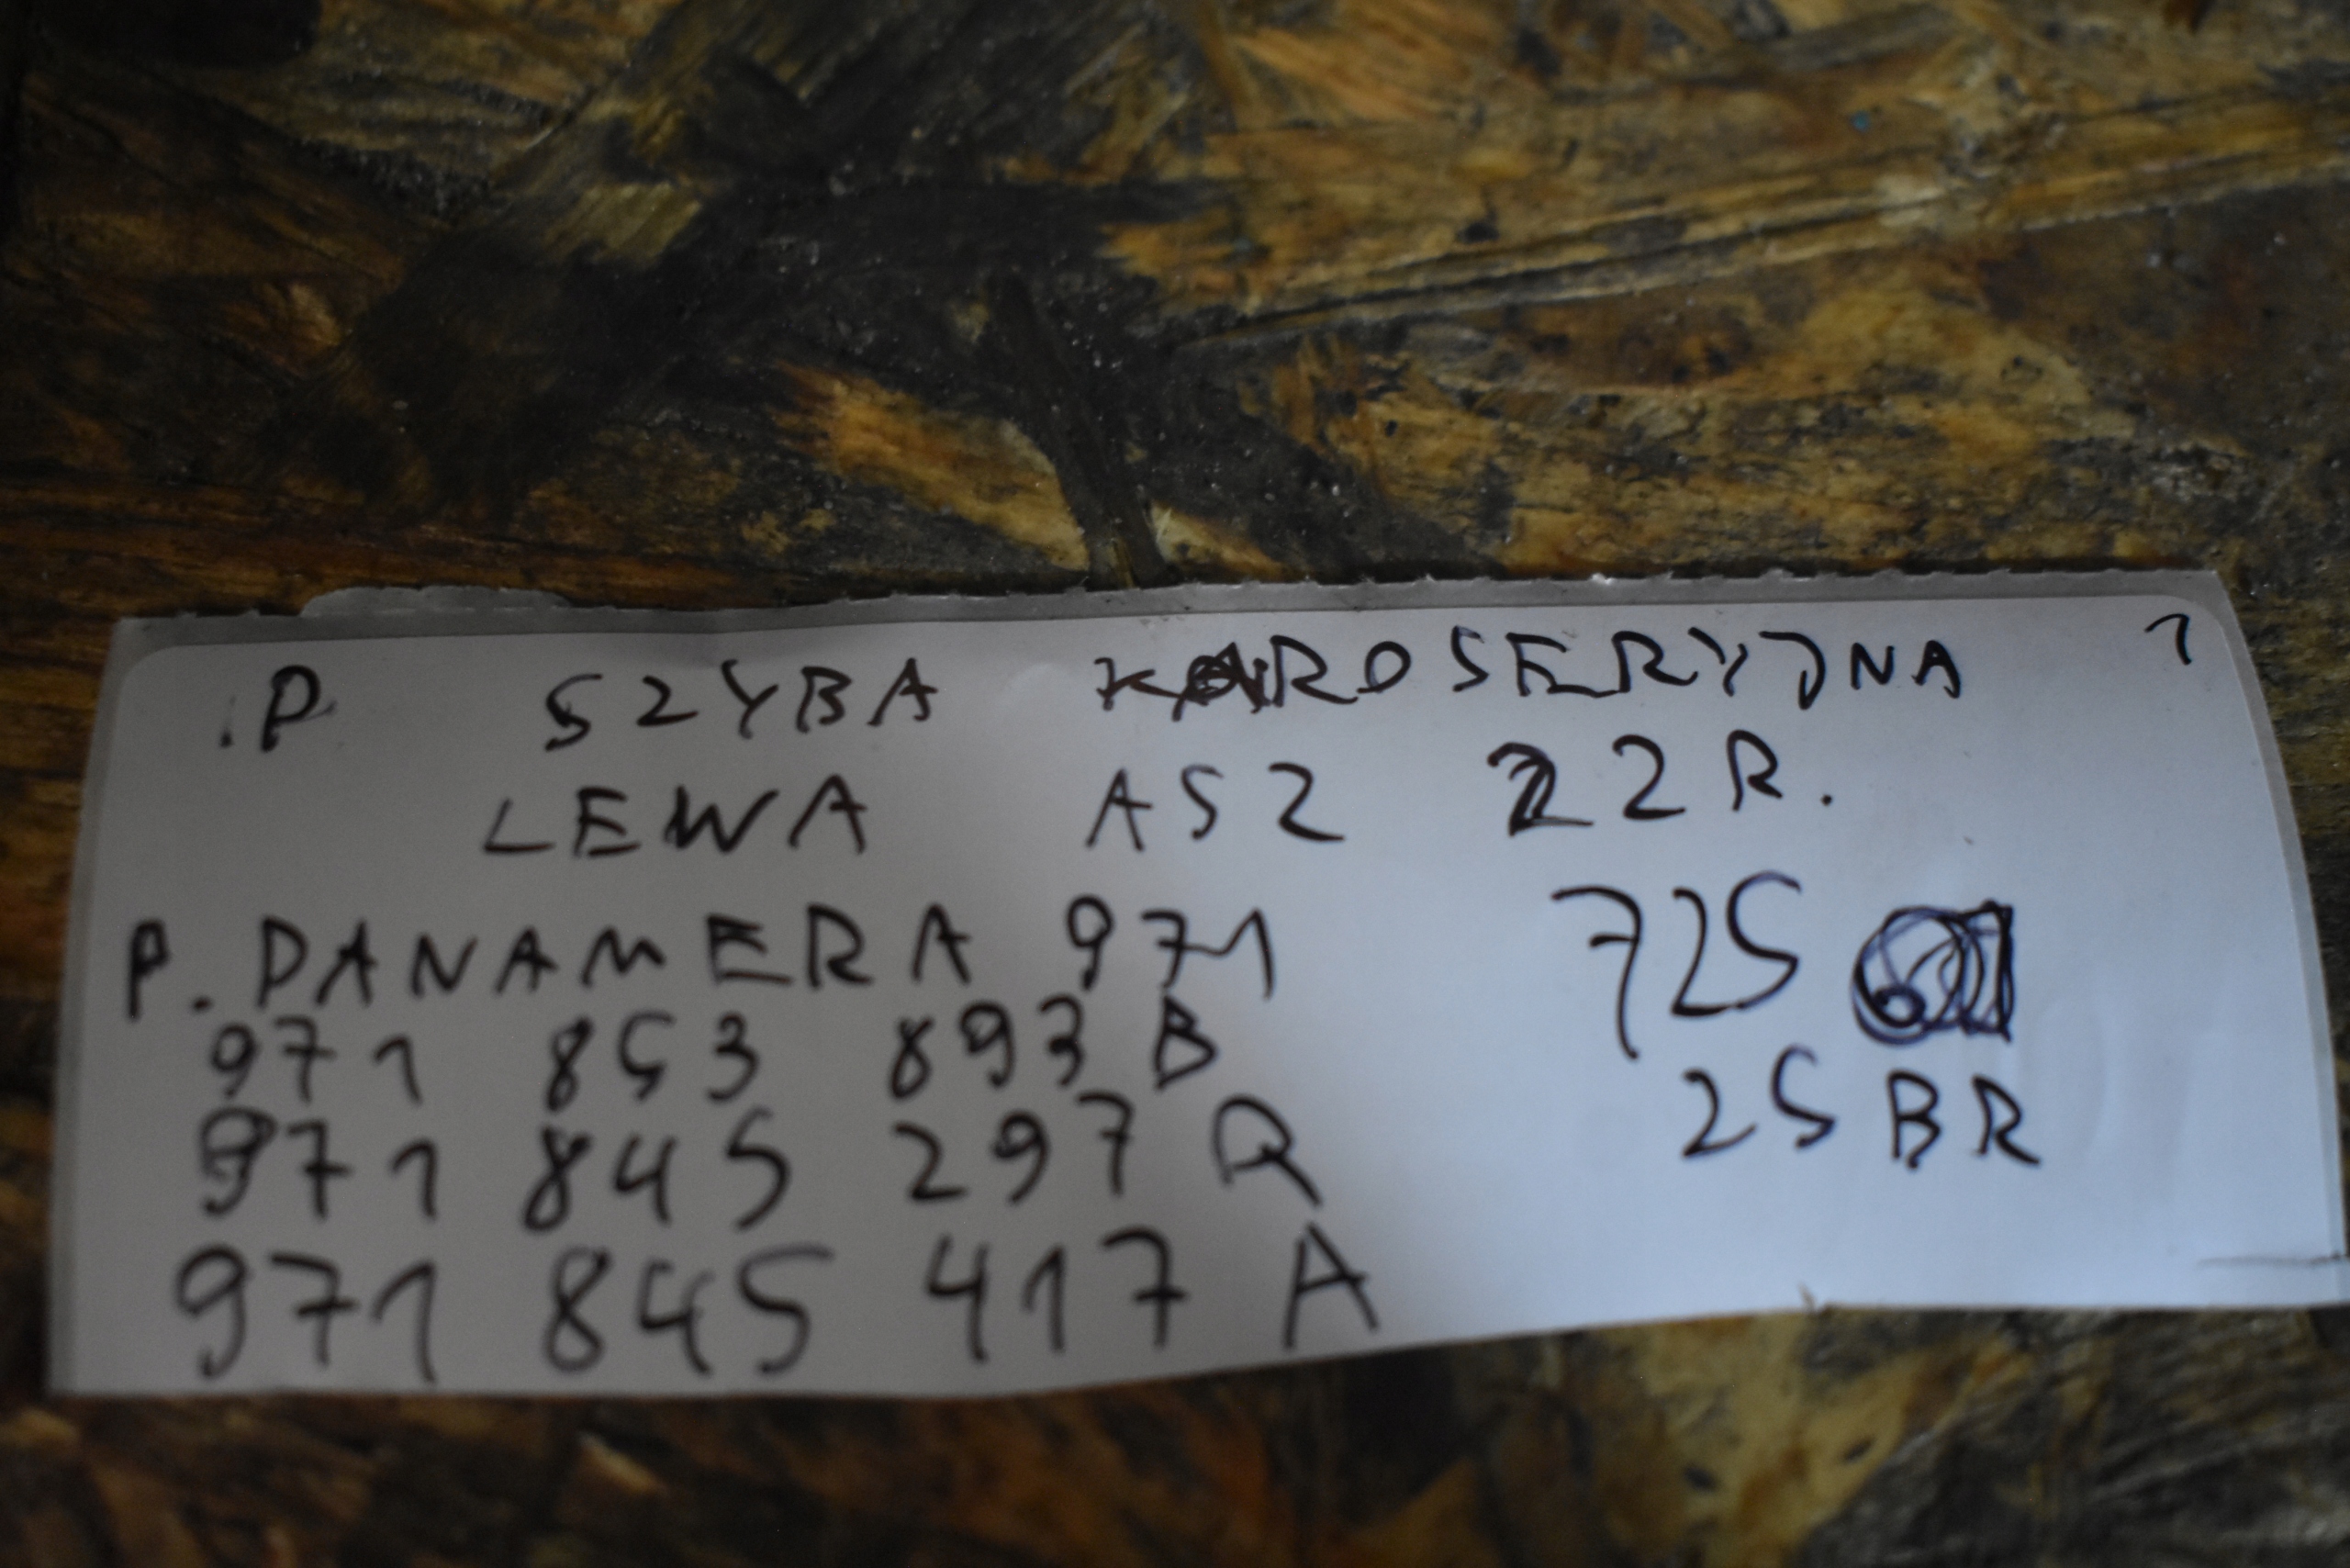 .P SZYBA KAROSERYJNA 1
LEWA AS2 22R.
P. PANAMERA 971 725
971 853 893 B
25BR
971 845 297 Q
971 845 417 A